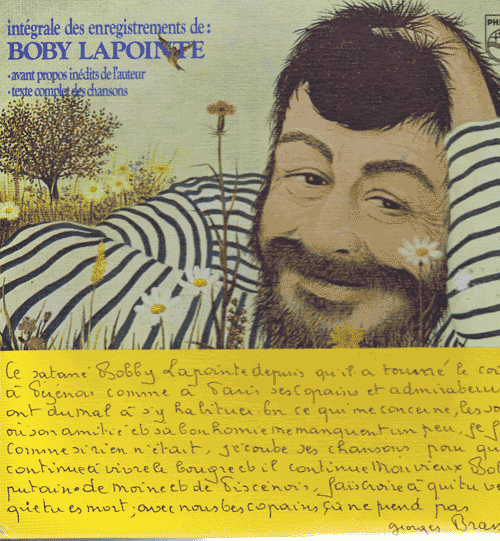 intégrale des enregistrements de:
BOBY LAPOINTE
•avant propos inédits de l'auteur
•texte complet des chansons
PHI
Ce satané Bobby Lapointe depuis qu'il a tourné le coi
à Pézénas comme à Paris ses copains et admirateur
ont du mal à s'y habituer. En ce qui me concerne, les
où son amitié et sa bonhomie me manquent un peu, je f
comme si rien n'était, j'écoute ses chansons pour qu
continue à vivre le bougre et il continue. Mon vieux Bo
putain de moine et de Piscénois, fais croire à qui tu ve
que tu es mort; avec nous les copains ça ne prend pas
Georges Bras